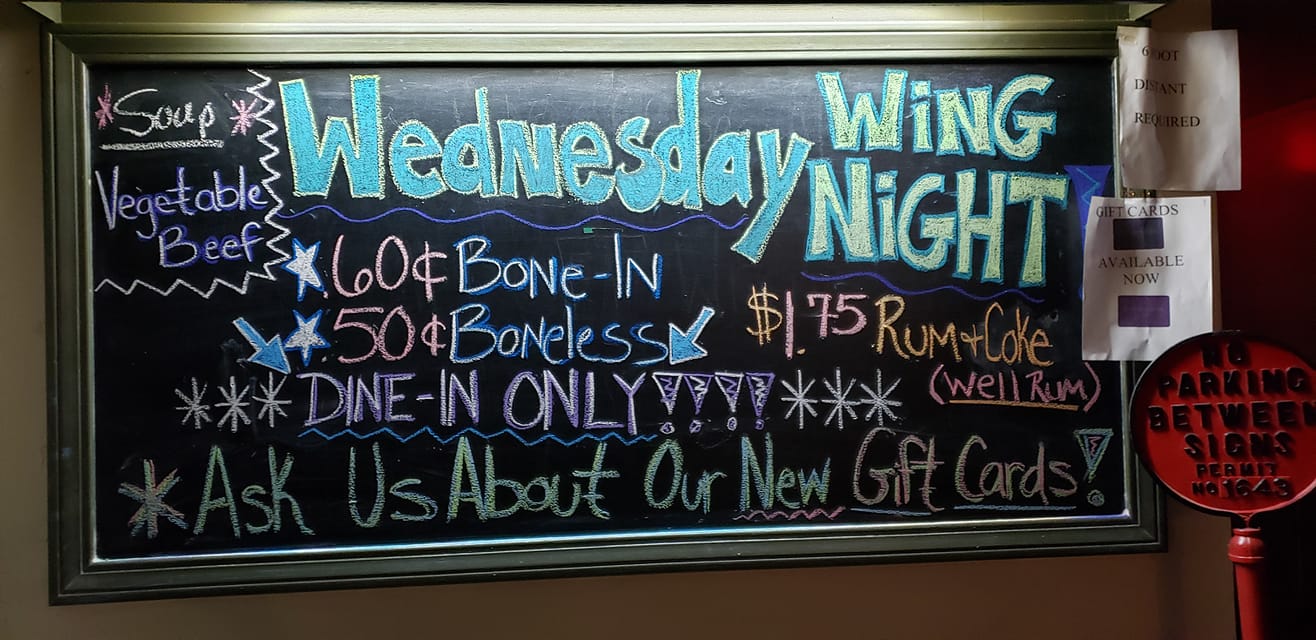 *Soup*
Vegetable
Beef
Wednesday
WiNG
NiGHT
.60¢ BONE-IN
.50¢ Boneless
$1.75 RUM+Coke
(Well Rum)
*** DINE-IN ONLY!!!! ***
*Ask Us About Our New Gift Cards!
6 FOOT
DISTANT
REQUIRED
GIFT CARDS
AVAILABLE
NOW
NO
PARKING
BETWEEN
SIGNS
PERMIT
NO 1643